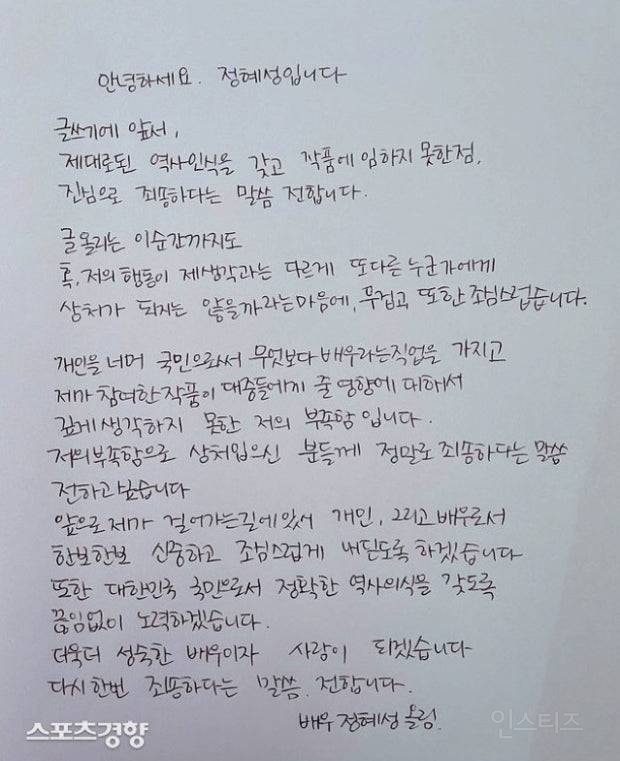 안녕하세요. 정혜성입니다
글쓰기에 앞서,
제대로된 역사인식을 갖고 작품에 임하지 못한점,
진심으로 죄송하다는 말씀 전합니다.
글 올리는 이순간까지도
혹, 저의 행동이 제생각과는 다르게 또다른 누군가에게
상처가 되지는 않을까라는마음에, 무겁고 또한 조심스럽습니다.
개인을 너머 국민으로써 무엇보다 배우라는직업을 가지고
제가 참여한 작품이 대중들에게 줄 영향에 대해서
깊게 생각하지 못한 저의 부족함 입니다.
저의부족함으로 상처입으신 분들께 정말로 죄송하다는 말씀
전하고싶습니다
앞으로 제가 걸어가는길에 있서 개인, 그리고 배우로서
한보한보 신중하고 조심스럽게 내딛도록 하겠습니다
또한 대한민국 국민으로서 정확한 역사의식을 갖도록
끊임없이 노력하겠습니다.
더욱더 성숙한 배우이자 사람이 되겠습니다
다시 한번 죄송하다는 말씀 전합니다.
배우 정혜성 올림.
스포츠경향
인스티즈